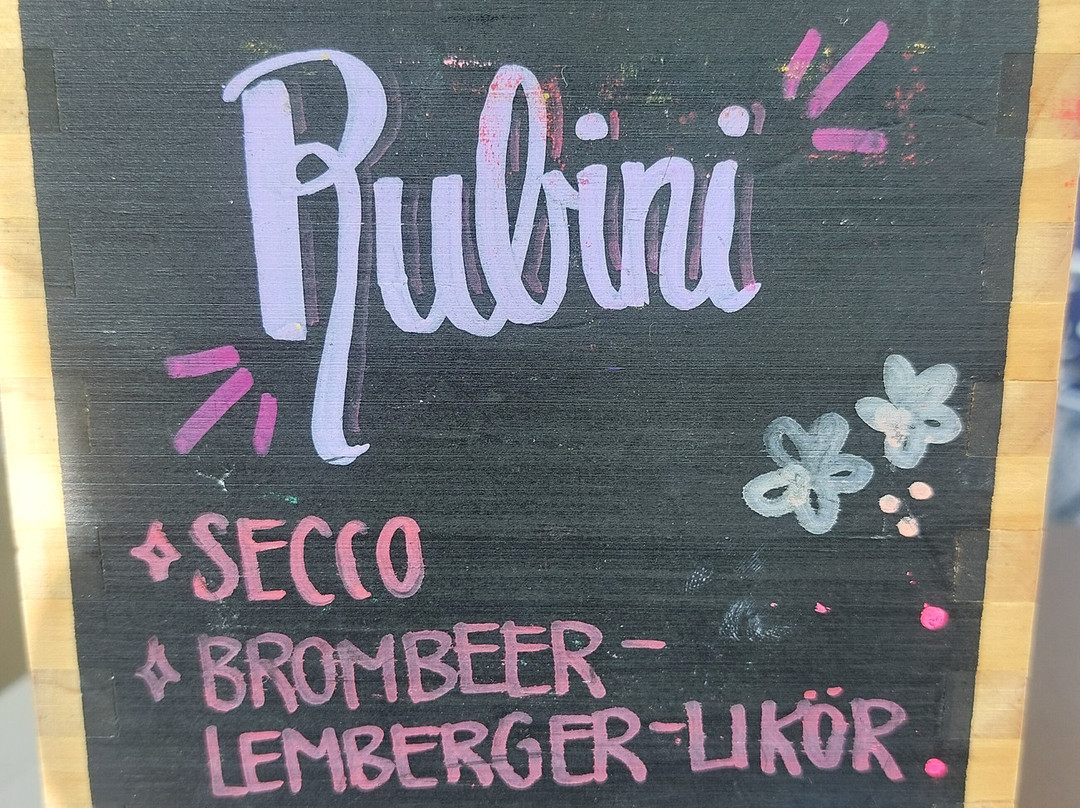 Rubini
SECCO
BROMBEER-
LEMBERGER-LIKÖR